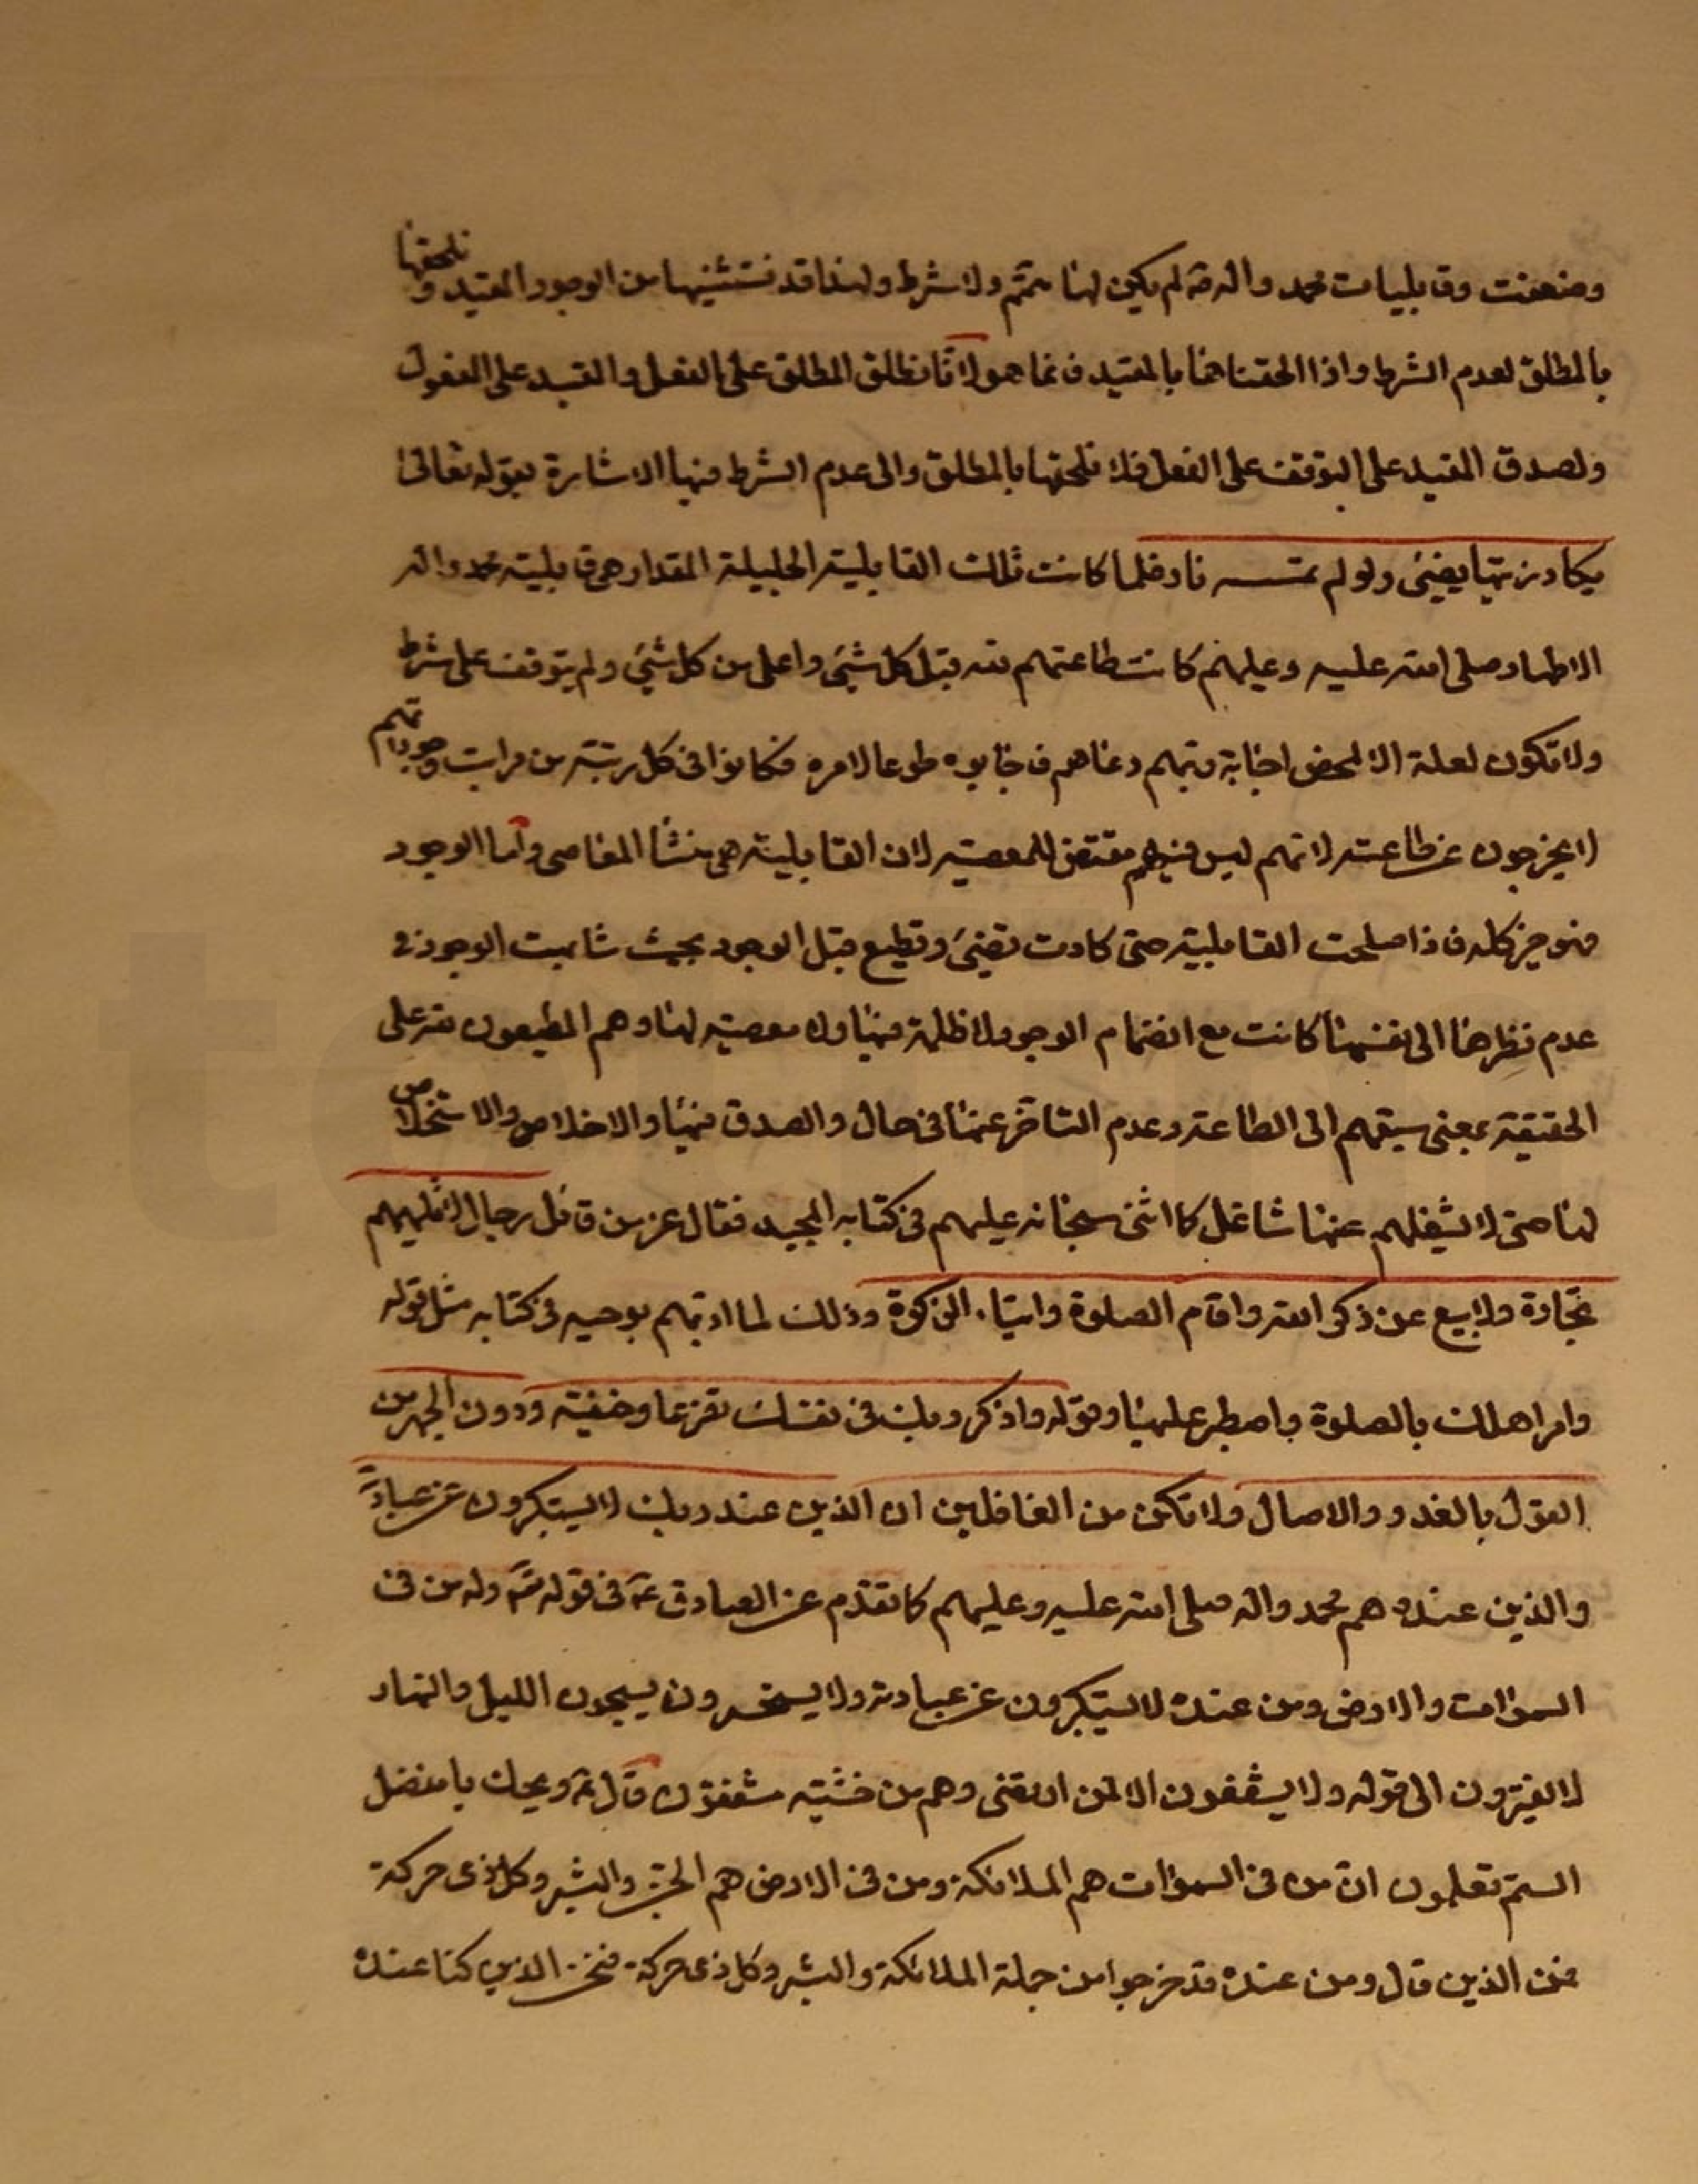 وضعفت وقابليات محمد واله ص لم يكن لها متمم ولا شرط ولهذا قد نستثنيها من الوجود المقيد ونلحقها
بالمطلق لعدم الشرط واذا الحقناها بالمقيد فانما هو لانا نطلق المطلق على الفعل والمقيد على المفعول
ولصدق المقيد على التوقف على الفعل فلا نلحقها بالمطلق والى عدم الشرط فيها الاشارة بقوله تعالى
يكاد زيتها يضيئ ولو لم تمسسه نار فلما كانت تلك القابلية الجليلة المقدار هى قابلية محمد واله
الاطهار صلى الله عليه وعليهم كانت طاعتهم لله قبل كل شيئ واعلى من كل شيئ ولم يتوقف على شرط
ولا تكون لعلة الا لمحض اجابة ربهم دعاهم فاجابوه طوعا لامره فكانوا فى كل رتبة من مراتب وجوداتهم
لا يخرجون عن طاعته لانهم ليس فيهم مقتض للمعصية لان القابلية هى منشأ المعاصى واما الوجود
فهو خير كله فاذا صلحت القابلية حتى كادت تضيئ وتطيع قبل الوجود بحيث شابهت الوجود فى
عدم نظرها الى نفسها كانت مع انضمام الوجود لا ظلمة فيها ولا معصية لها وهم المطيعون لله على
الحقيقة بمعنى سبقهم الى الطاعة وعدم التاخر عنها فى حال والصدق فيها والاخلاص والاستخلاص
لها حتى لا يشغلهم عنها شاغل كما اثنى سبحانه عليهم فى كتابه المجيد فقال عز من قائل رجال لا تلهيهم
تجارة ولا بيع عن ذكر الله واقام الصلوة وايتاء الزكوة وذلك لما ادبهم بوحيه فى كتابه مثل قوله
وامر اهلك بالصلوة واصطبر عليها وقوله واذكر ربك فى نفسك تضرعا وخيفة ودون الجهر من
القول بالغدو والاصال ولا تكن من الغافلين ان الذين عند ربك لا يستكبرون عن عبادته
والذين عنده هم محمد واله صلى الله عليه وعليهم كما تقدم عن الصادق ع فى قوله تع وله من فى
السموات والارض ومن عنده لا يستكبرون عن عبادته ولا يستحسرون يسبحون الليل والنهار
لا يفترون الى قوله ولا يشفعون الا لمن ارتضى وهم من خشيته مشفقون قال ع ويحك يا مفضل
الستم تعلمون ان من فى السموات هم الملائكة ومن فى الارض هم الجن والبشر وكل ذى حركة
فمن الذين قال ومن عنده قد خرجوا من جملة الملائكة والبشر وكل ذى حركة فنحن الذين كنا عنده